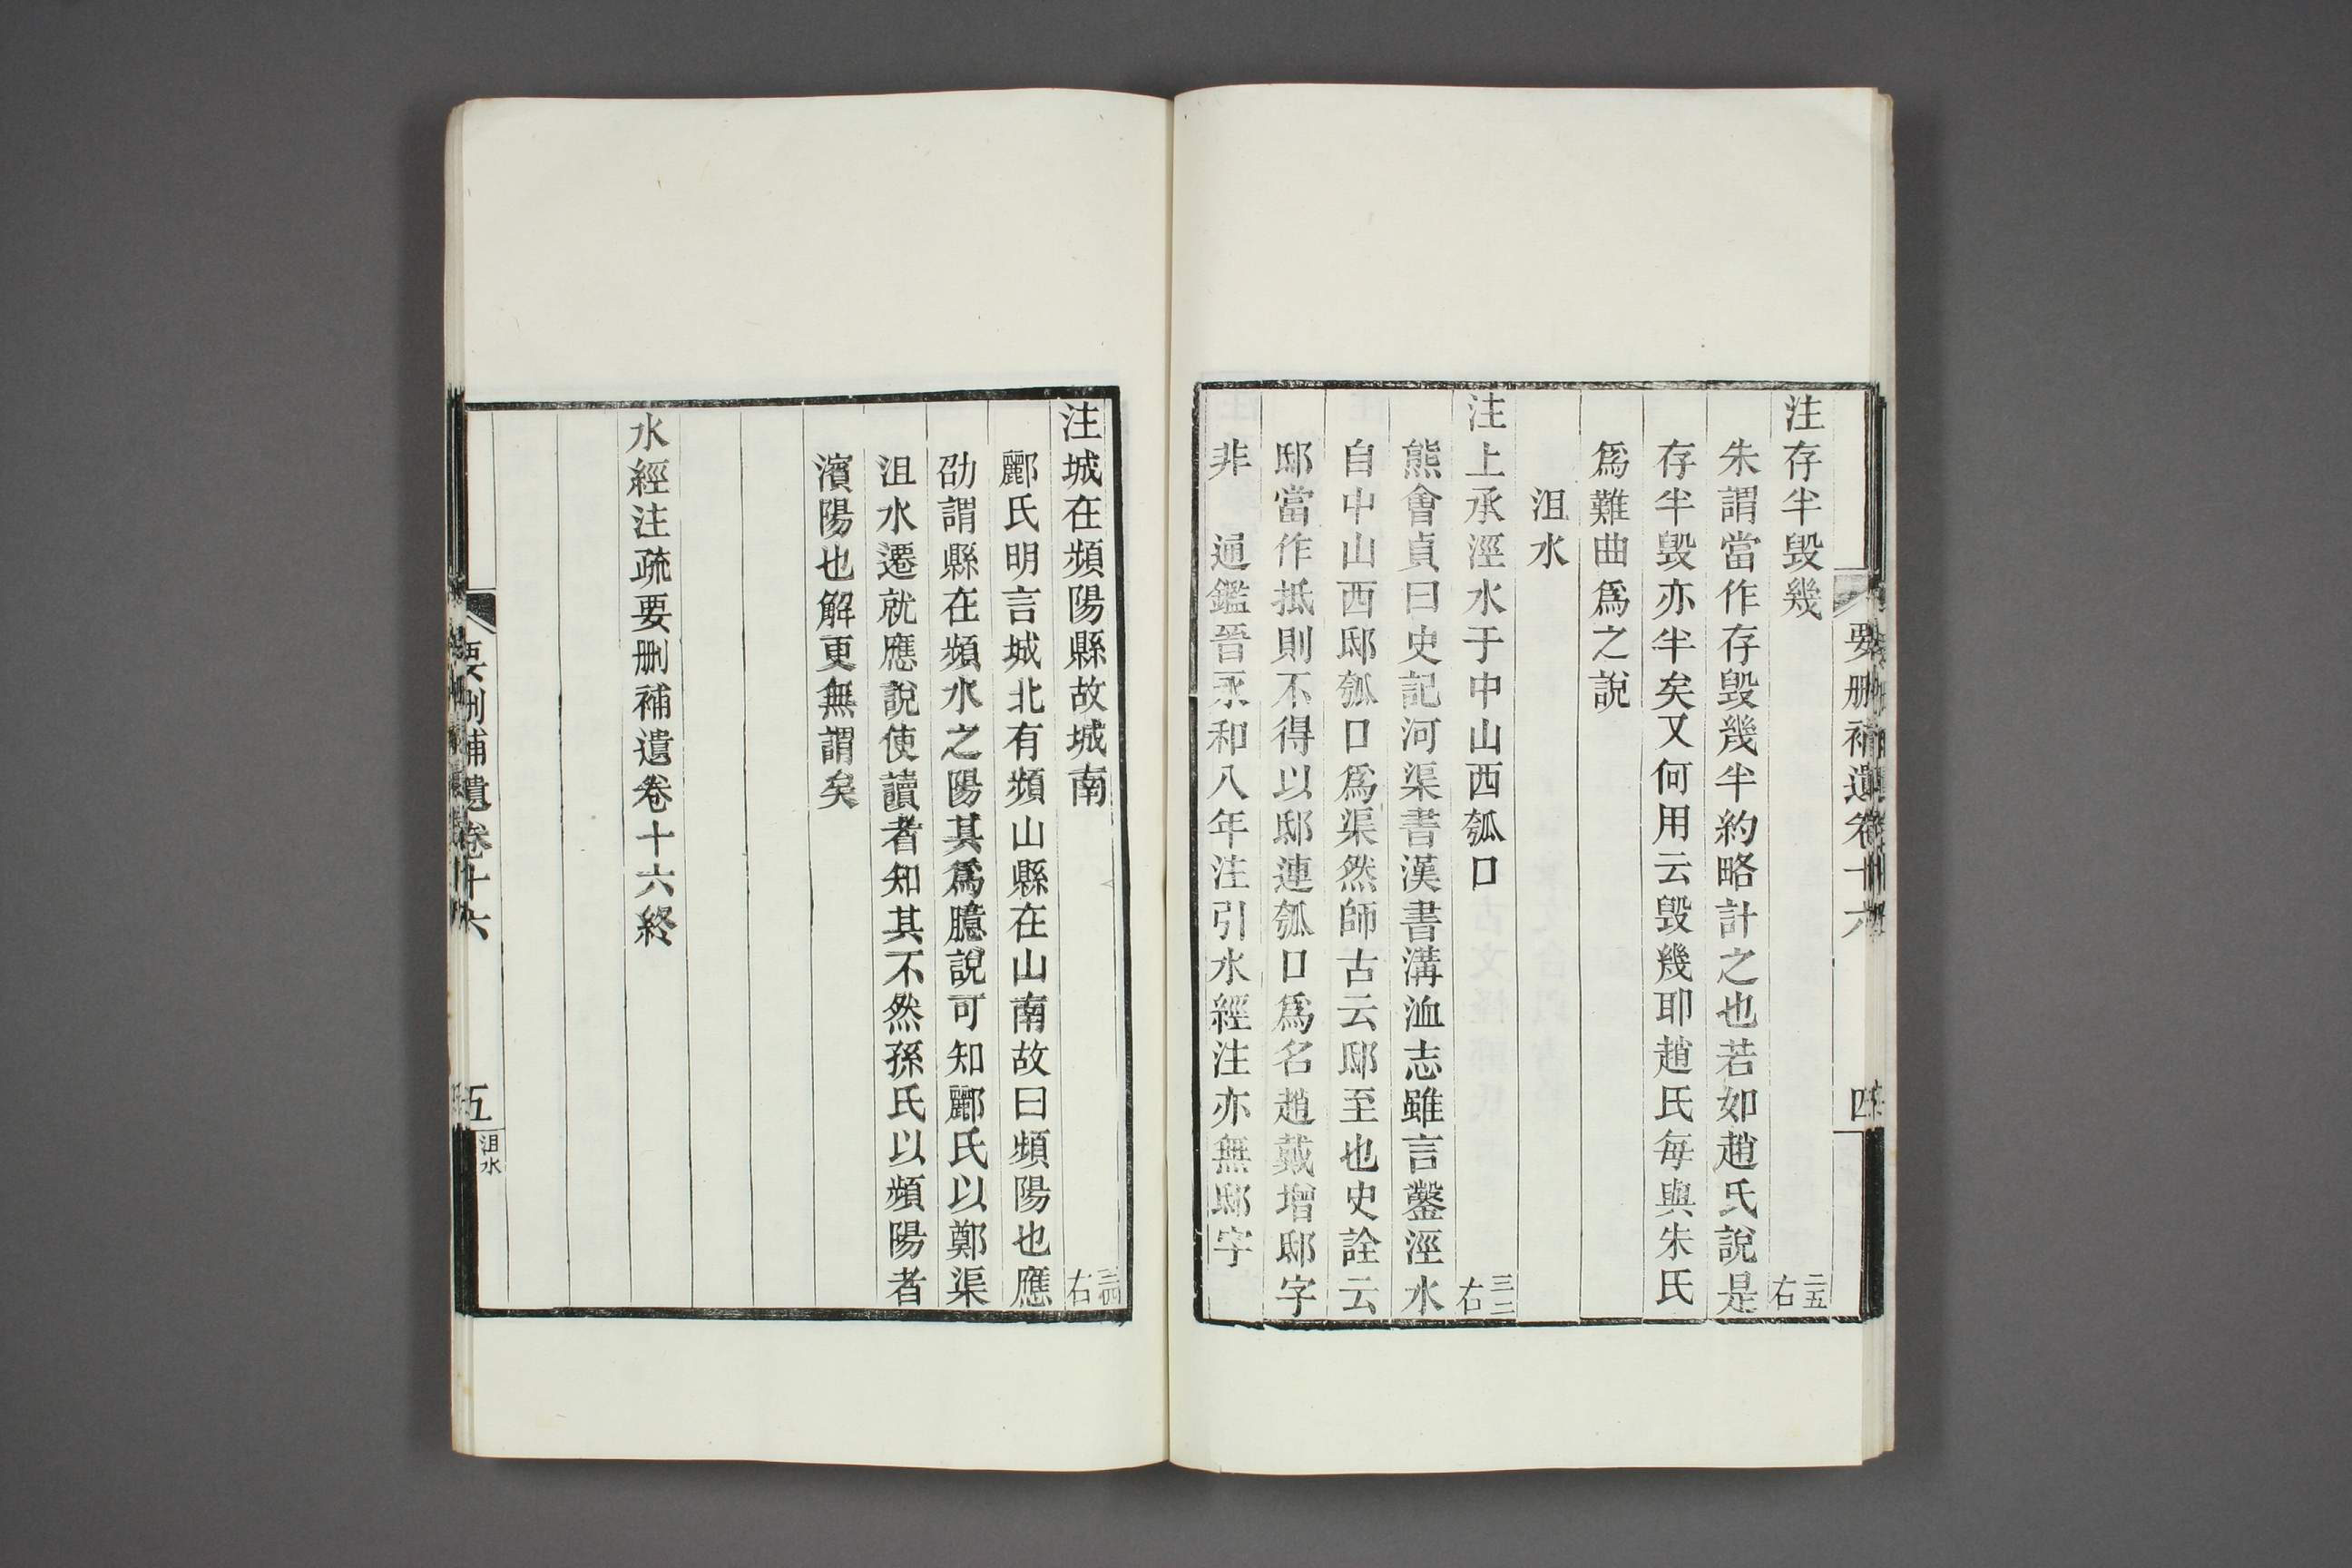 要删補遺卷十六
四
注存半毁幾
二五
右
朱謂當作存毁幾半約略計之也若如趙氏說是
存半毁亦半矣又何用云毁幾耶趙氏每與朱氏
爲難曲爲之說
沮水
注上承涇水于中山西瓠口
三二
右
熊會貞曰史記河渠書漢書溝洫志雖言鑿涇水
自中山西邸瓠口爲渠然師古云邸至也史詮云
邸當作抵則不得以邸連瓠口爲名趙戴增邸字
非　通鑑晉永和八年注引水經注亦無邸字
注城在頻陽縣故城南
三四
右
酈氏明言城北有頻山縣在山南故曰頻陽也應
劭謂縣在頻水之陽其爲臆說可知酈氏以鄭渠
沮水遷就應說使讀者知其不然孫氏以頻陽者
濱陽也解更無謂矣
水經注疏要删補遺卷十六終
要删補遺卷十六
五
沮水